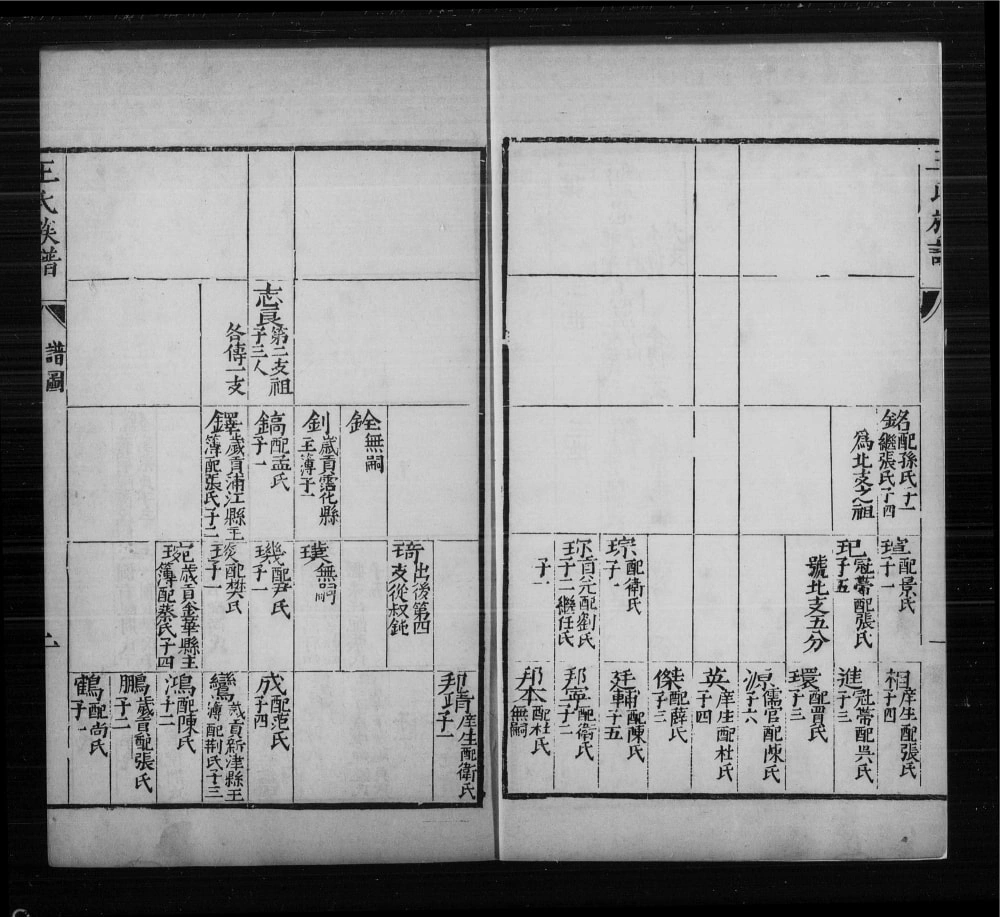 王氏族譜
銘配孫氏子一
繼張氏子四
為北支之祖
瑄配景氏
子一
玘冠帶配張氏
子五
號北支五分
琮配衛氏
子一
百戶元配劉氏
子二繼任氏
子一
相庠生配張氏
子四
進冠帶配吳氏
子三
環配賈氏
子三
源儒官配陳氏
子六
英庠生配杜氏
子四
傑配薛氏
子三
廷輔配陳氏
子五
邦寧配衛氏
子二
邦本配杜氏
無嗣
志良第二支祖
子三人
各傳一支
銓無嗣
釗歲貢霑化縣
主簿子一
鎬配孟氏
子一
鐸歲貢浦江縣主
簿配張氏子二
琦出後第四
支從叔鈍
璞無嗣
璣配尹氏
子一
琰配樊氏
子一
琬歲貢金華縣主
簿配蔡氏子四
邦靖庠生配衛氏
子二
成配范氏
子四
鸞歲貢新津縣主
簿配荊氏子三
鴻配陳氏
子二
鵬歲貢配張氏
子二
鶴配尚氏
子一
王氏族譜
譜圖